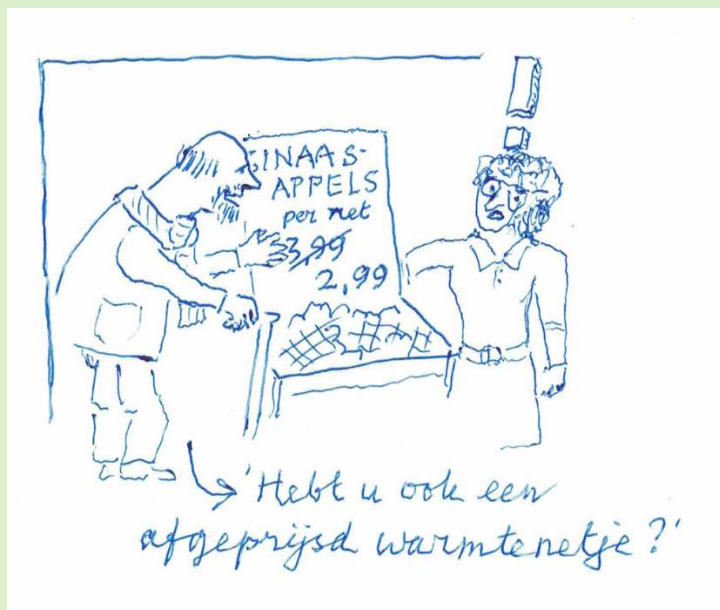 SINAAS-
APPELS
per net
3,99
2,99
'Hebt u ook een
afgeprijsd warmtenetje?'